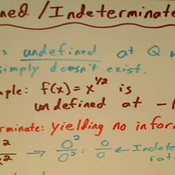 ned / Indeterminate
s undefined at Q w
simply doesn't exist.
ple: f(x) = x^1/2 is
undefined at -1
rminate: yielding no infor
⇒ 0²/0² = 0/0 ← Indete
rat